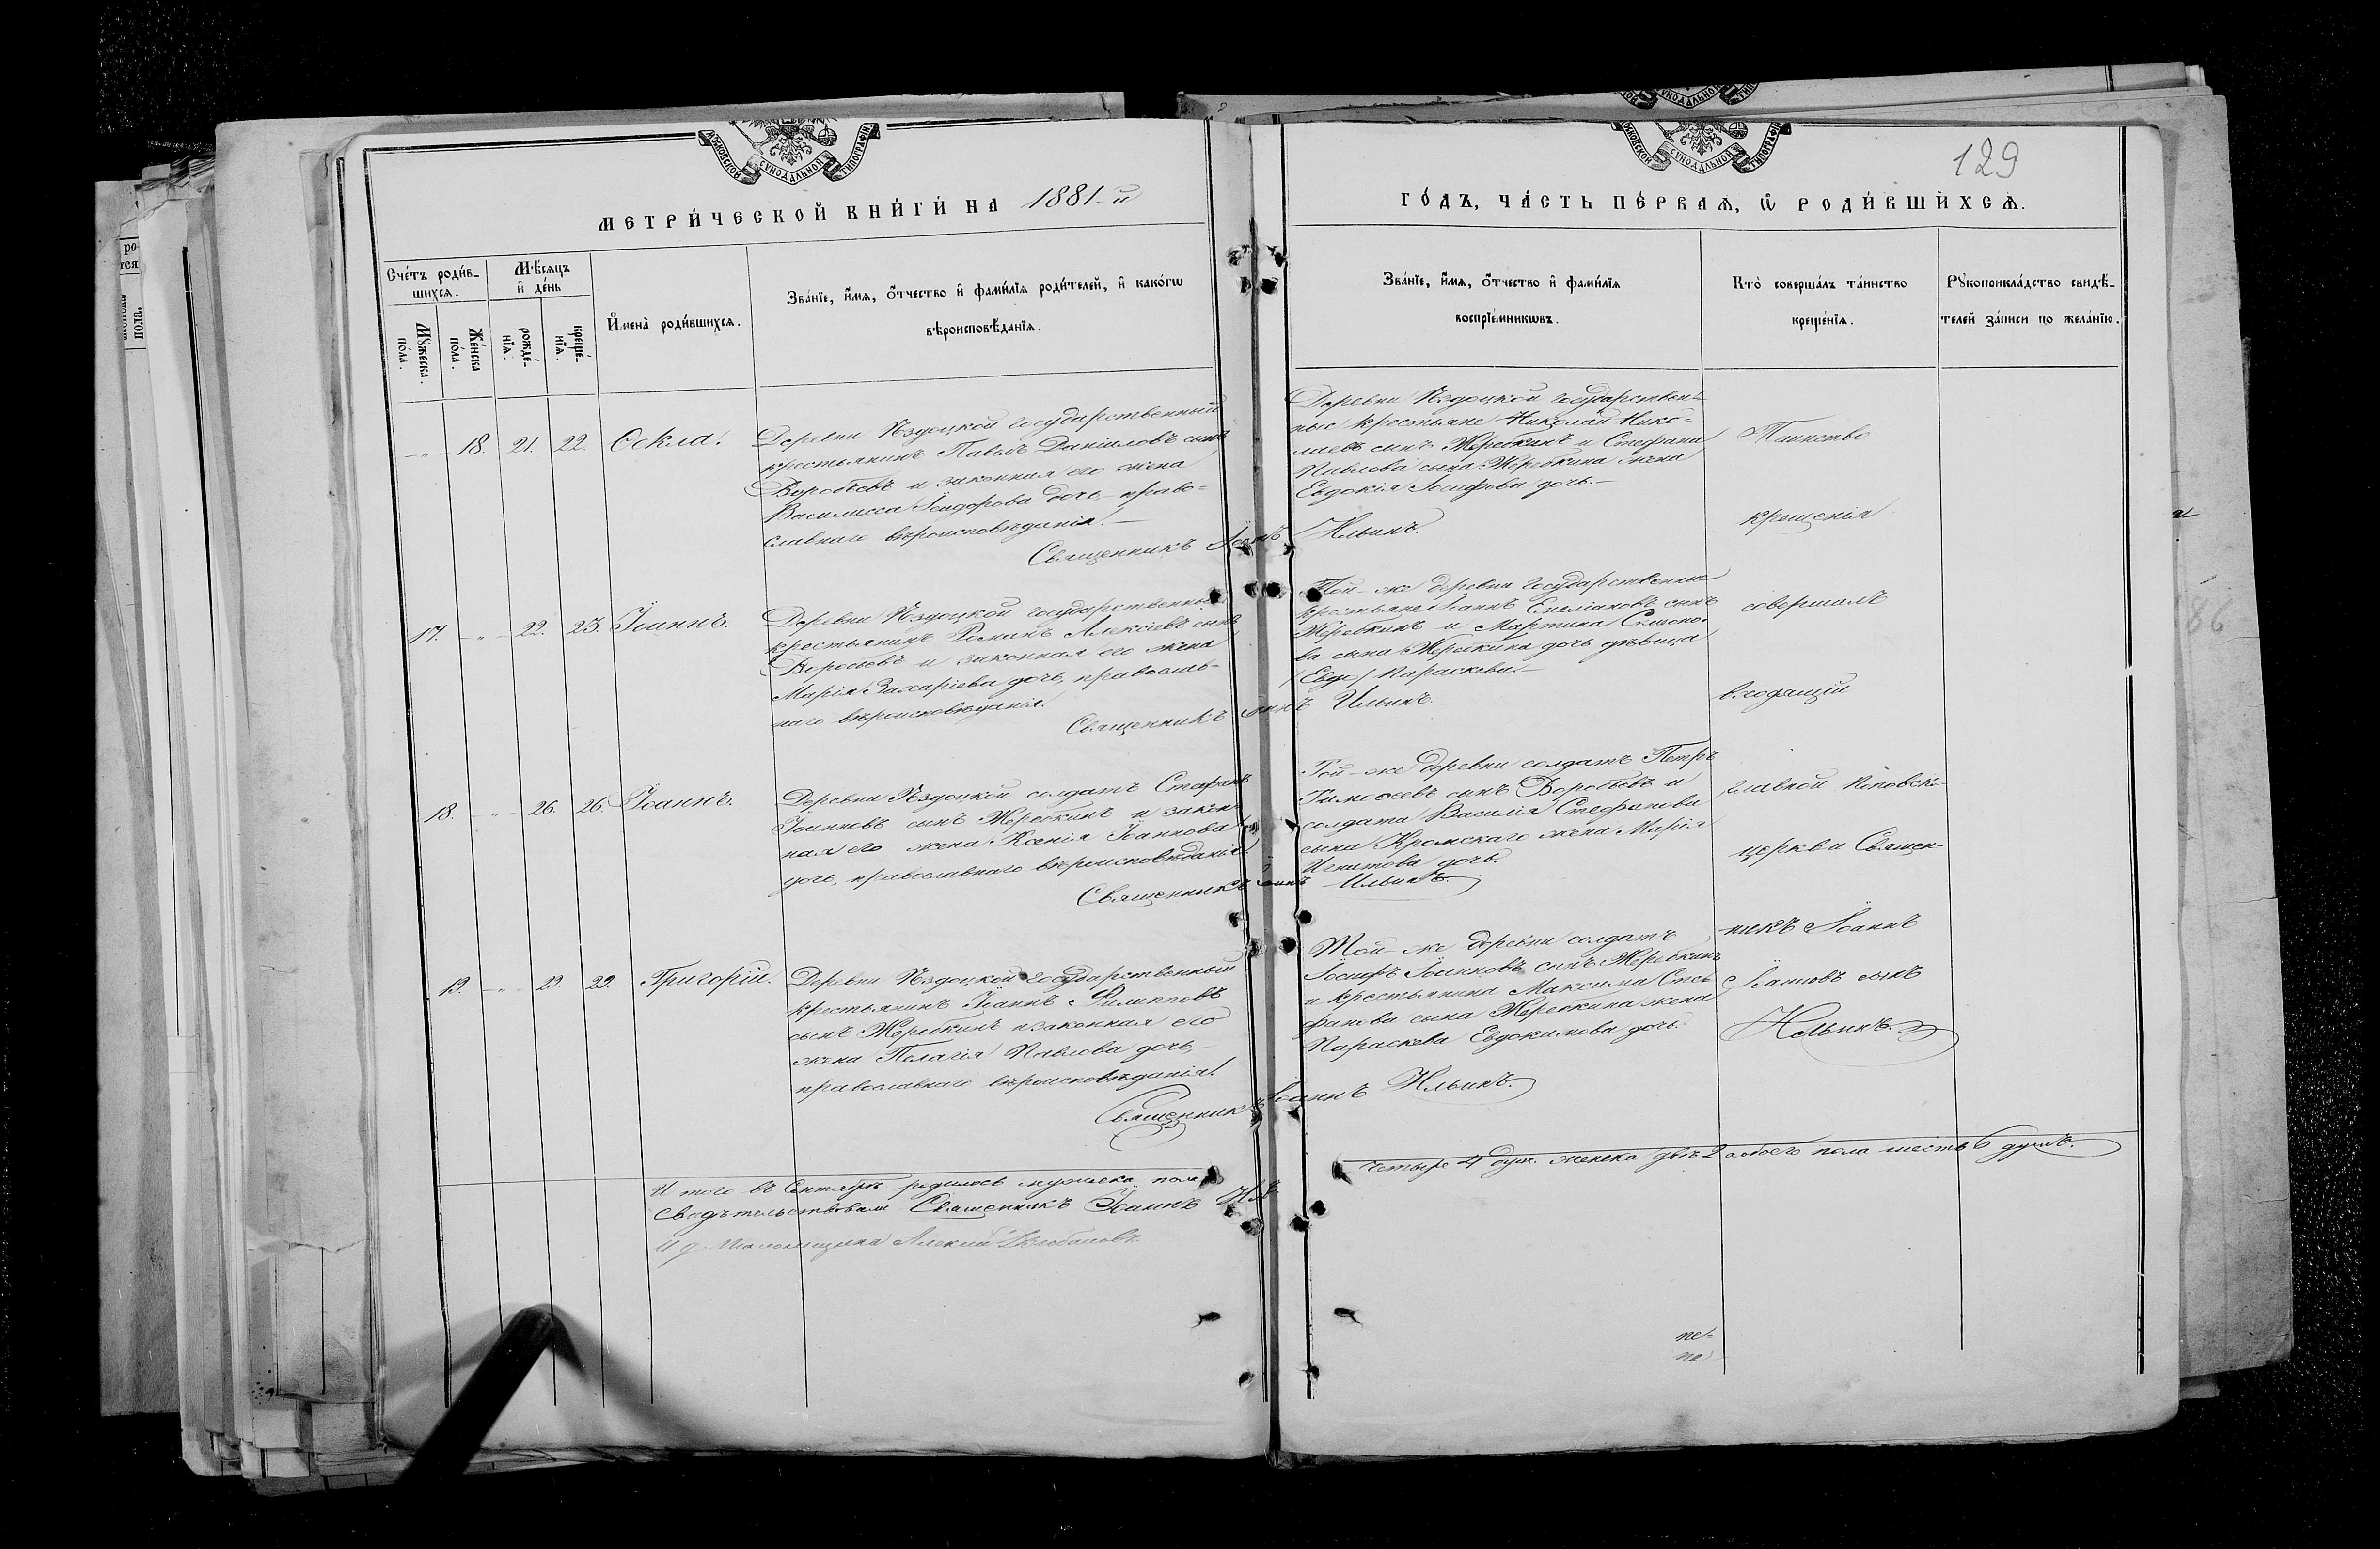 МОСКОВСКОЙ СУНОДАЛЬНОЙ ТИПОГРАФІИ
МЕТРИ́ЧЕСКОЙ КНИ́ГИ НА 1881-й
Сче́тъ роди́в-
шихсѧ.
Мѣ́сѧцъ
и҆ де́нь
Мꙋ́жеска
по́ла.
Же́нска
по́ла.
рожде́-
нїѧ.
креще́-
нїѧ.
И҆мена̀ роди́вшихсѧ.
Зва́нїе, и҆́мѧ, ѻ҆́тчество и҆ фами́лїѧ роди́телей, и҆ како́гѡ
вѣроисповѣ́данїѧ.
-"- 18. 21. 22. Ѳекла.
Деревни Яздоцкой государственный
крестьянинъ Павелъ Даніиловъ сынъ
Воробьевъ и законная его жена
Василисса Ісидорова дочь, право-
славнаго вѣроисповѣданія.
Священникъ Іоаннъ Ильинъ.
17. -"- 22. 23. Іоаннъ.
Деревни Яздоцкой государственный
крестьянинъ Романъ Алексѣевъ сынъ
Воробьевъ и законная его жена
Марія Захаріева дочь, православ-
наго вѣроисповѣданія.
Священникъ Іоаннъ Ильинъ.
18. -"- 26. 26. Іоаннъ.
Деревни Яздоцкой солдатъ Стефанъ
Іоанновъ сынъ Жеребкинъ и закон-
ная его жена Ксенія Іоаннова
дочь, православнаго вѣроисповѣданія.
Священникъ Іоаннъ Ильинъ.
19. -"- 29. 29. Григорій.
Деревни Яздоцкой государственный
крестьянинъ Іоаннъ Филипповъ
сынъ Жеребкинъ и законная его
жена Пелагія Павлова дочь,
православнаго вѣроисповѣданія.
Священникъ Іоаннъ Ильинъ.
И того въ Сентябрѣ родилось мужеска пола
Свидѣтельствовали Священникъ Іоаннъ
И д. Псаломщика Алексѣй
129
ГО́ДЪ, ЧА́СТЬ ПЕ́РВАѦ, Ѡ РОДИ́ВШИХСѦ.
Зва́нїе, и҆́мѧ, ѻ҆́тчество и҆ фами́лїѧ
воспрїе́мникѡвъ.
Кто̀ соверша́лъ та́инство
креще́нїѧ.
Рꙋкоприкла́дство свидѣ́-
телей за́писи по жела́нїю.
Деревни Яздоцкой государствен-
ные крестьяне Николай Нико-
лаевъ сынъ Жеребкинъ и Стефана
Павлова сына Жеребкина жена
Евдокія Іосифова дочь.-
Той-же деревни государственные
крестьяне Іоаннъ Емеліановъ сынъ
Жеребкинъ и Мартина Симоно-
ва сына Жеребкина дочь дѣвица
/Евдо/ Параскева.-
Той-же деревни солдатъ Петръ
Тимоѳеевъ сынъ Воробьевъ и
солдата Василія Стефанова
сына Кромскаго жена Марія
Игнатова дочь.
Той-же деревни солдатъ
Іосифъ Іоанновъ сынъ Жеребкинъ
и крестьянина Максима Сте-
фанова сына Жеребкина жена
Параскева Евдокимова дочь.
Таинство
крещенія
совершалъ
церкви Священ-
никъ Іоаннъ
сынъ
Ильинъ.
четыре 4 душ. женска двѣ 2 а обоего пола шесть 6 душъ.
не-
не